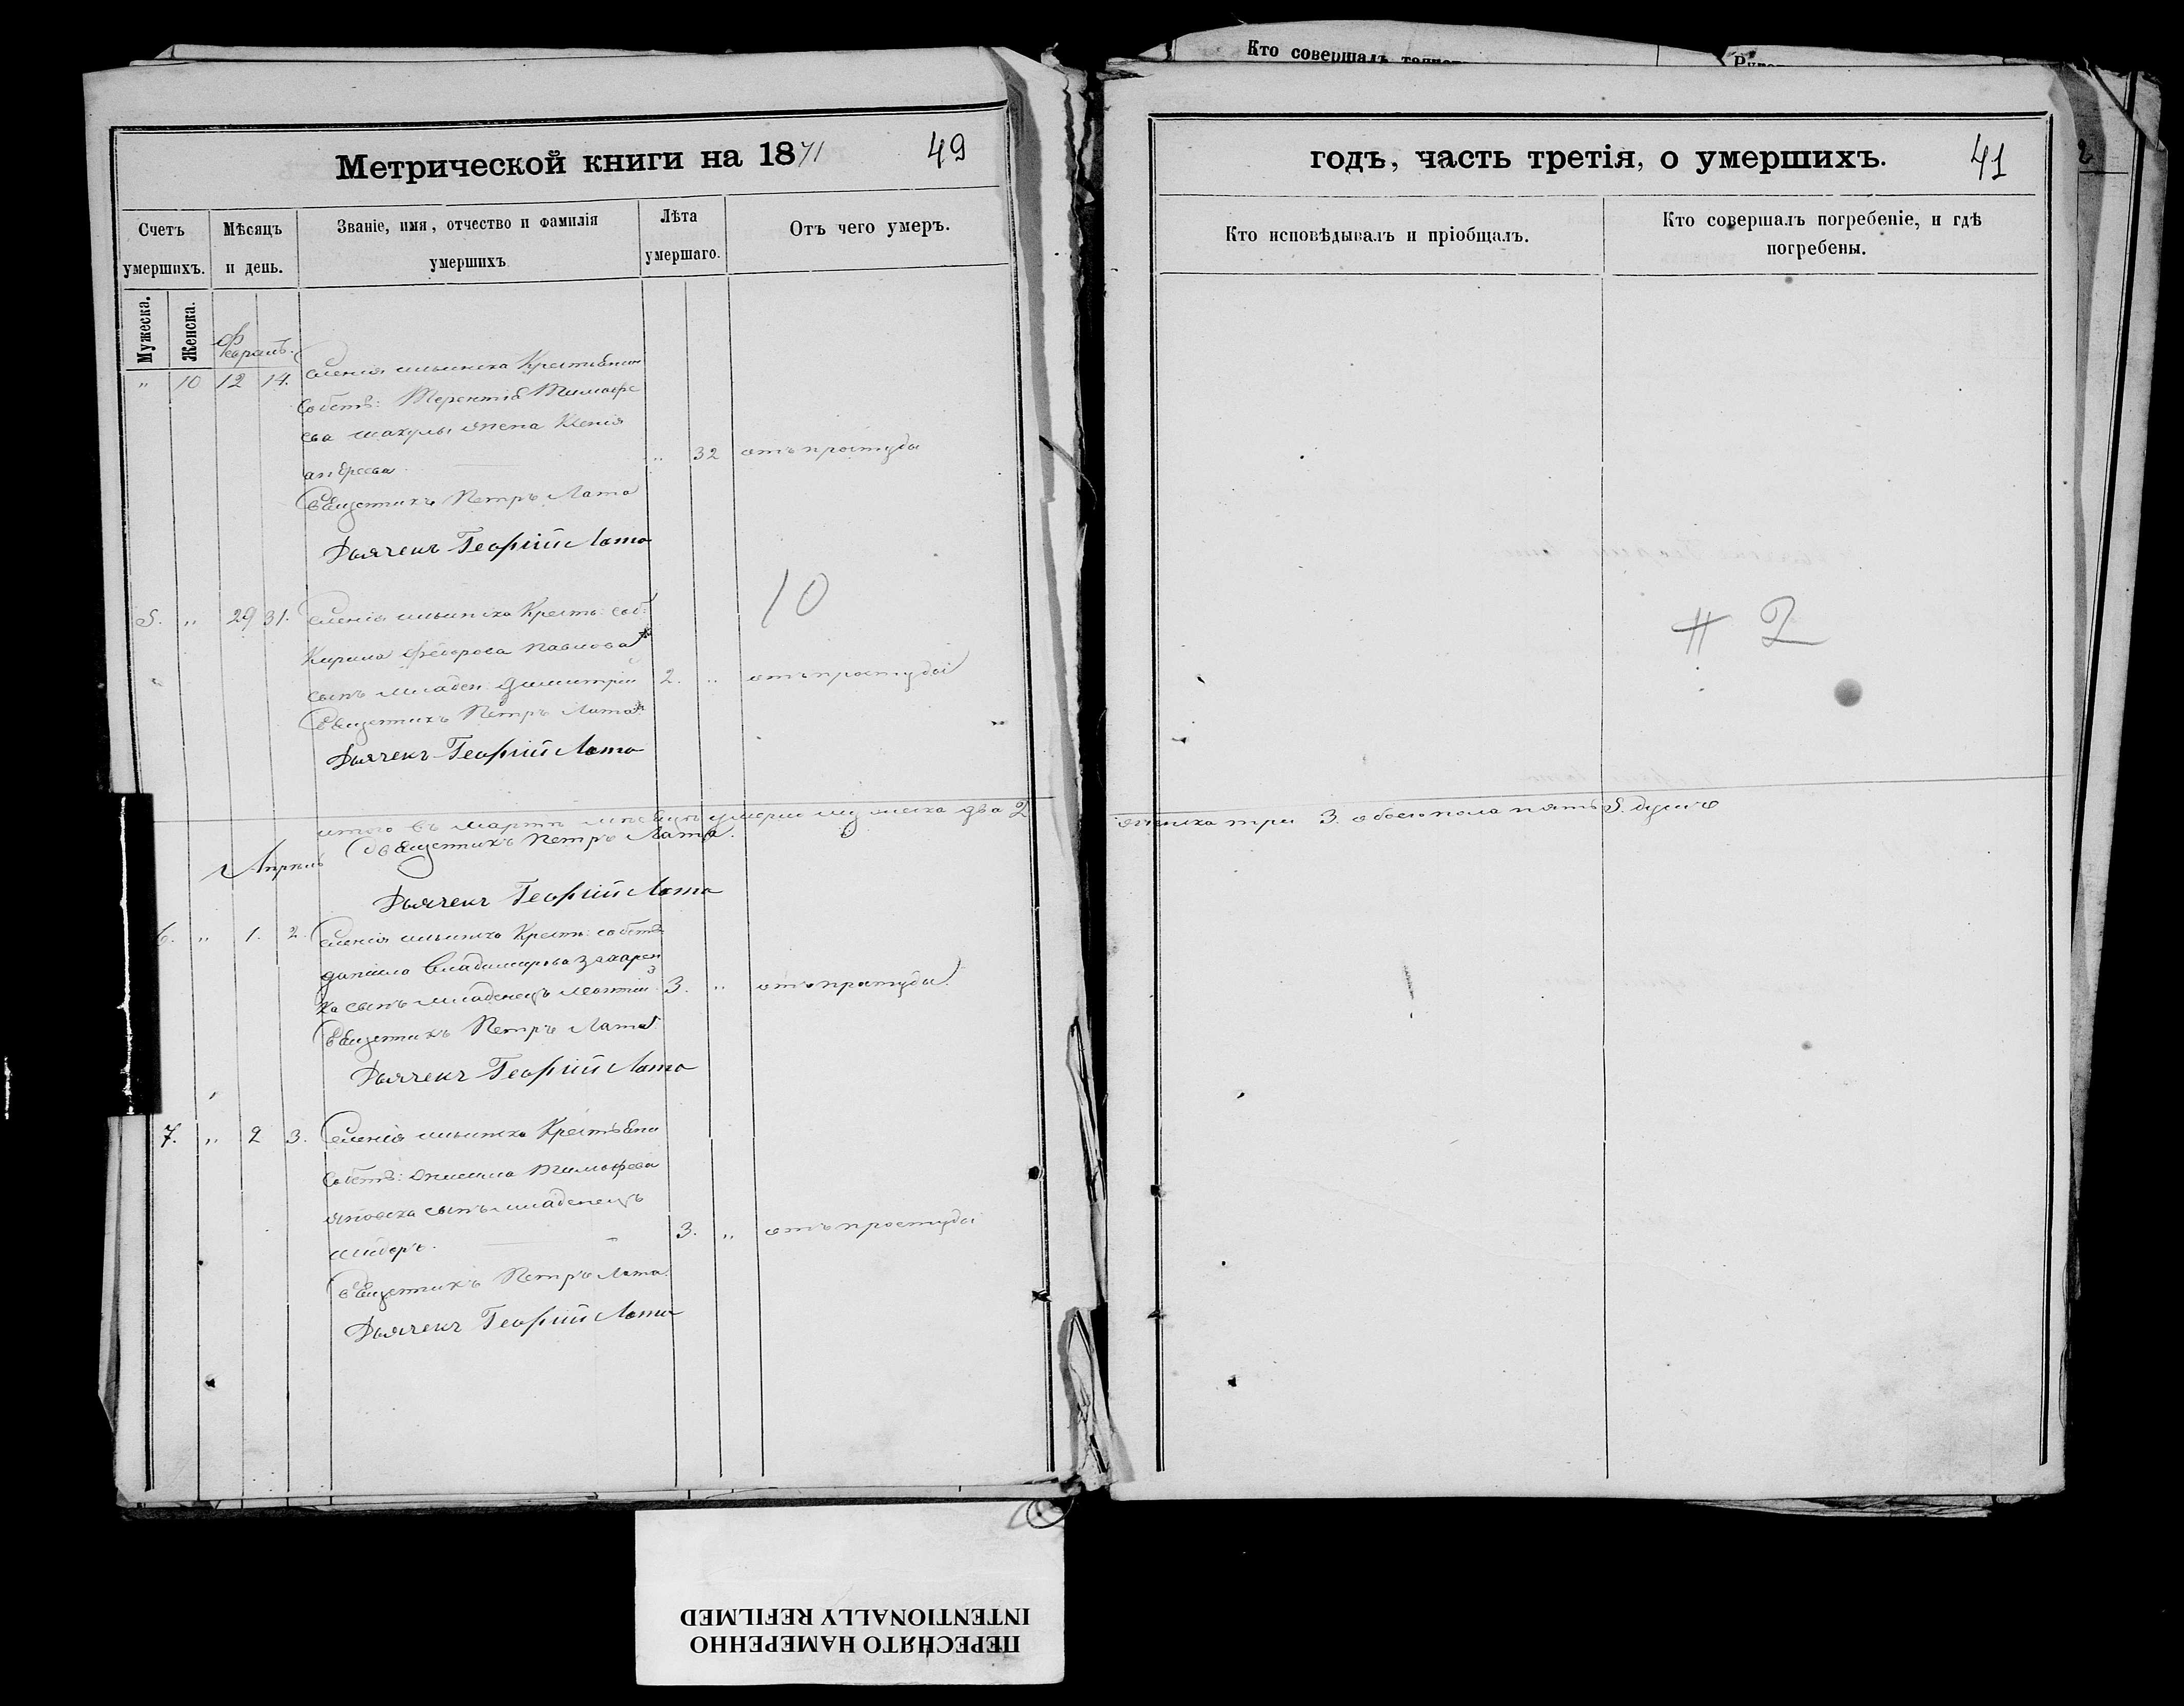 Кто совершалъ
Метрической книги на 1871
49
Счетъ умершихъ.
Мѣсяцъ и день.
Званіе, имя, отчество и фамилія умершихъ
Лѣта умершаго.
Отъ чего умеръ.
Мужеска.
Женска.
" 10 12 14. Селенія
Собств: Терентія Тимофе
ева жена Ксенія
андреева " 32 отъ простуды
Священикъ Петръ Лата
Дьячекъ Георгій Лата
10
5. " 29 31. Селенія Крестъ: соб:
Кирила Федорова Павлова
сынъ младен: Димитрій 2. " отъ простуды
Священикъ Петръ Лата
Дьячекъ Георгій Лата
итого въ Мартѣ мѣсяцѣ умерло мужеска два 2
Священикъ Петръ Лата.
Апрѣль
Дьячекъ Георгій Лата
6. " 1. 2. Селенія Крестъ: собств:
данила Владимирова захарен
ка сынъ младенецъ леонтій 3. " отъ простуды
Священикъ Петръ Лата
Дьячекъ Георгій Лата
7. " 2 3. Селенія
Собств: Тимофеева
сынъ младенецъ
3. " отъ простуды
Священикъ Петръ Лата
Дьячекъ Георгій Лата
годъ, часть третія, о умершихъ.
41
Кто исповѣдывалъ и пріобщалъ.
Кто совершалъ погребеніе, и гдѣ погребены.
# 2
женска три 3. обоего пола пять 5. душъ
ПЕРЕСНЯТО НАМЕРЕННО
INTENTIONALLY REFILMED